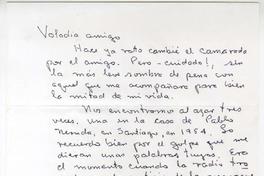 Volodia amigo
Hace ya rato cambié el camarada
por el amigo. Pero - cuidado!, sin
la más leve sombra de pena con
aquel que me acompañara para bien
la mitad de mi vida.
Nos encontramos al azar tres
veces, una en la casa de Pablo
Neruda, en Santiago, en 1954. Lo
recuerdo bien por el golpe que me
dieron unas palabras tuyas. Era
el momento cuando la radio tra